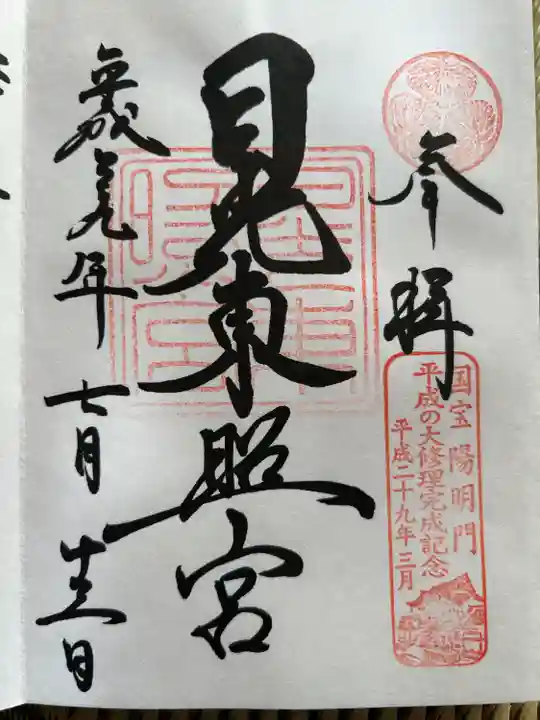 奉拝
国宝陽明門
平成の大修理完成記念
平成二十九年三月
日光東照宮
年七月
日